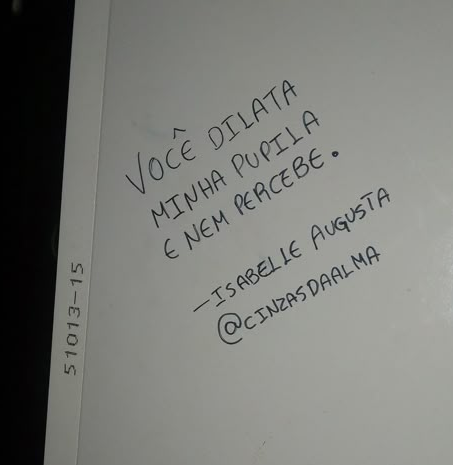 VOCÊ DILATA
MINHA PUPILA
E NEM PERCEBE.
—ISABELLE AUGUSTA
@CINZASDAALMA
51013-15